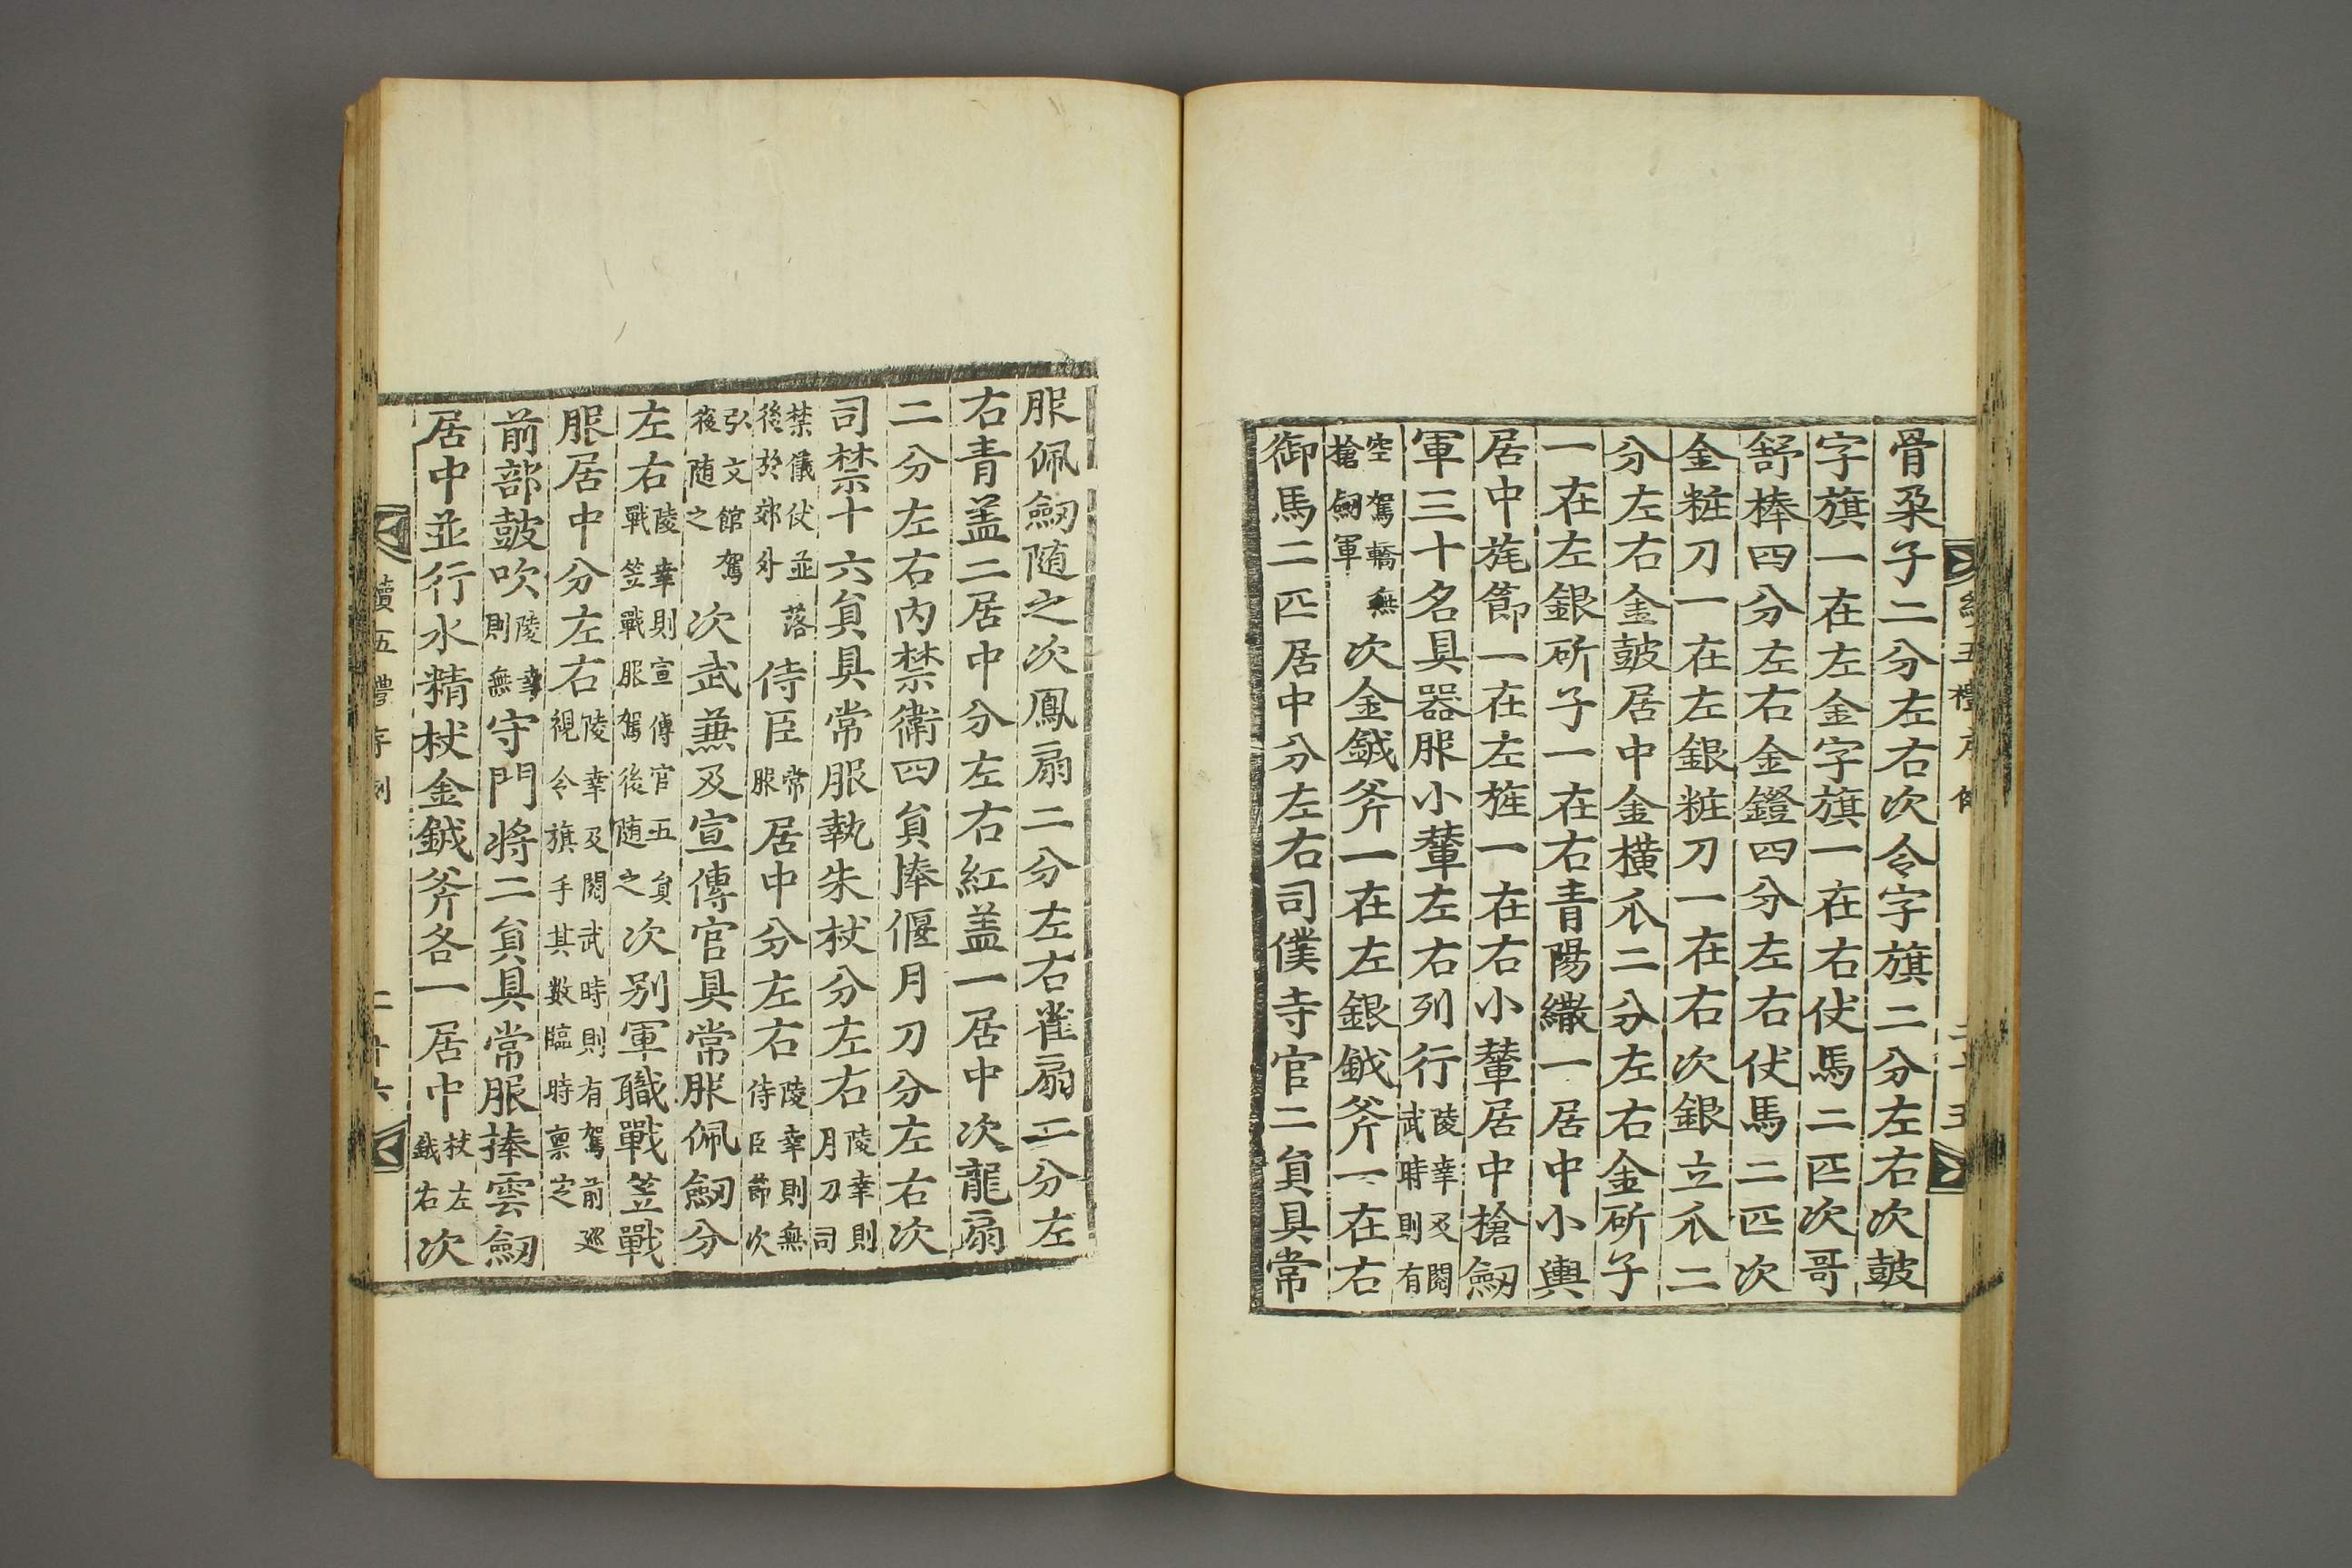 骨朶子二分左右次令字旗二分左右次皷
字旗一在左金字旗一在右仗馬二匹次哥
舒棒四分左右金鐙四分左右仗馬二匹次
金粧刀一在左銀粧刀一在右次銀立爪二
分左右金皷居中金橫爪二分左右金斫子
一在左銀斫子一在右青陽繖一居中小輿
居中旄節一在左旌一在右小輦居中槍劒
軍三十名具器服小輦左右列行陵幸及閱武時則有
空駕轎無槍劒軍次金鉞斧一在左銀鉞斧一在右
御馬二匹居中分左右司僕寺官二負具常
服佩劒随之次鳳扇二分左右雀扇二分左
右青盖二居中分左右紅盖一居中次龍扇
二分左右內禁衛四負捧偃月刀分左右次
司禁十六負具常服執朱杖分左右陵幸則月刀司
禁儀仗並落後於郊外侍臣常服居中分左右陵幸則無侍臣節次
弘文館駕後随之次武蕪及宣傳官具常服佩劒分
左右陵幸則宣傳官五負戰笠戰服駕後随之次别軍職戰笠戰
服居中分左右陵幸及閱武時則有駕前廵視令旗手其數臨時禀定
前部皷吹陵幸則無守門將二負具常服捧雲劒
居中並行水精杖金鉞斧各一居中杖左鉞右次